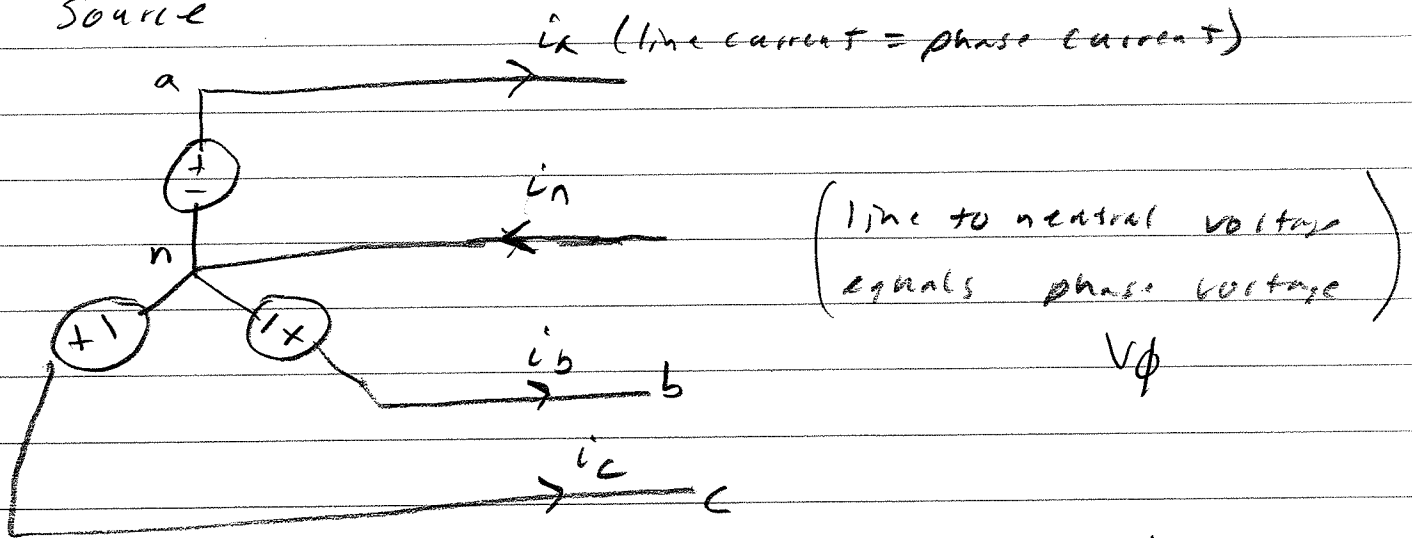 Source
ia (line current = phase current)
a
+
-
in
n
(line to neutral voltage
equals phase voltage)
Vϕ
+ -
- +
ib
b
ic
c